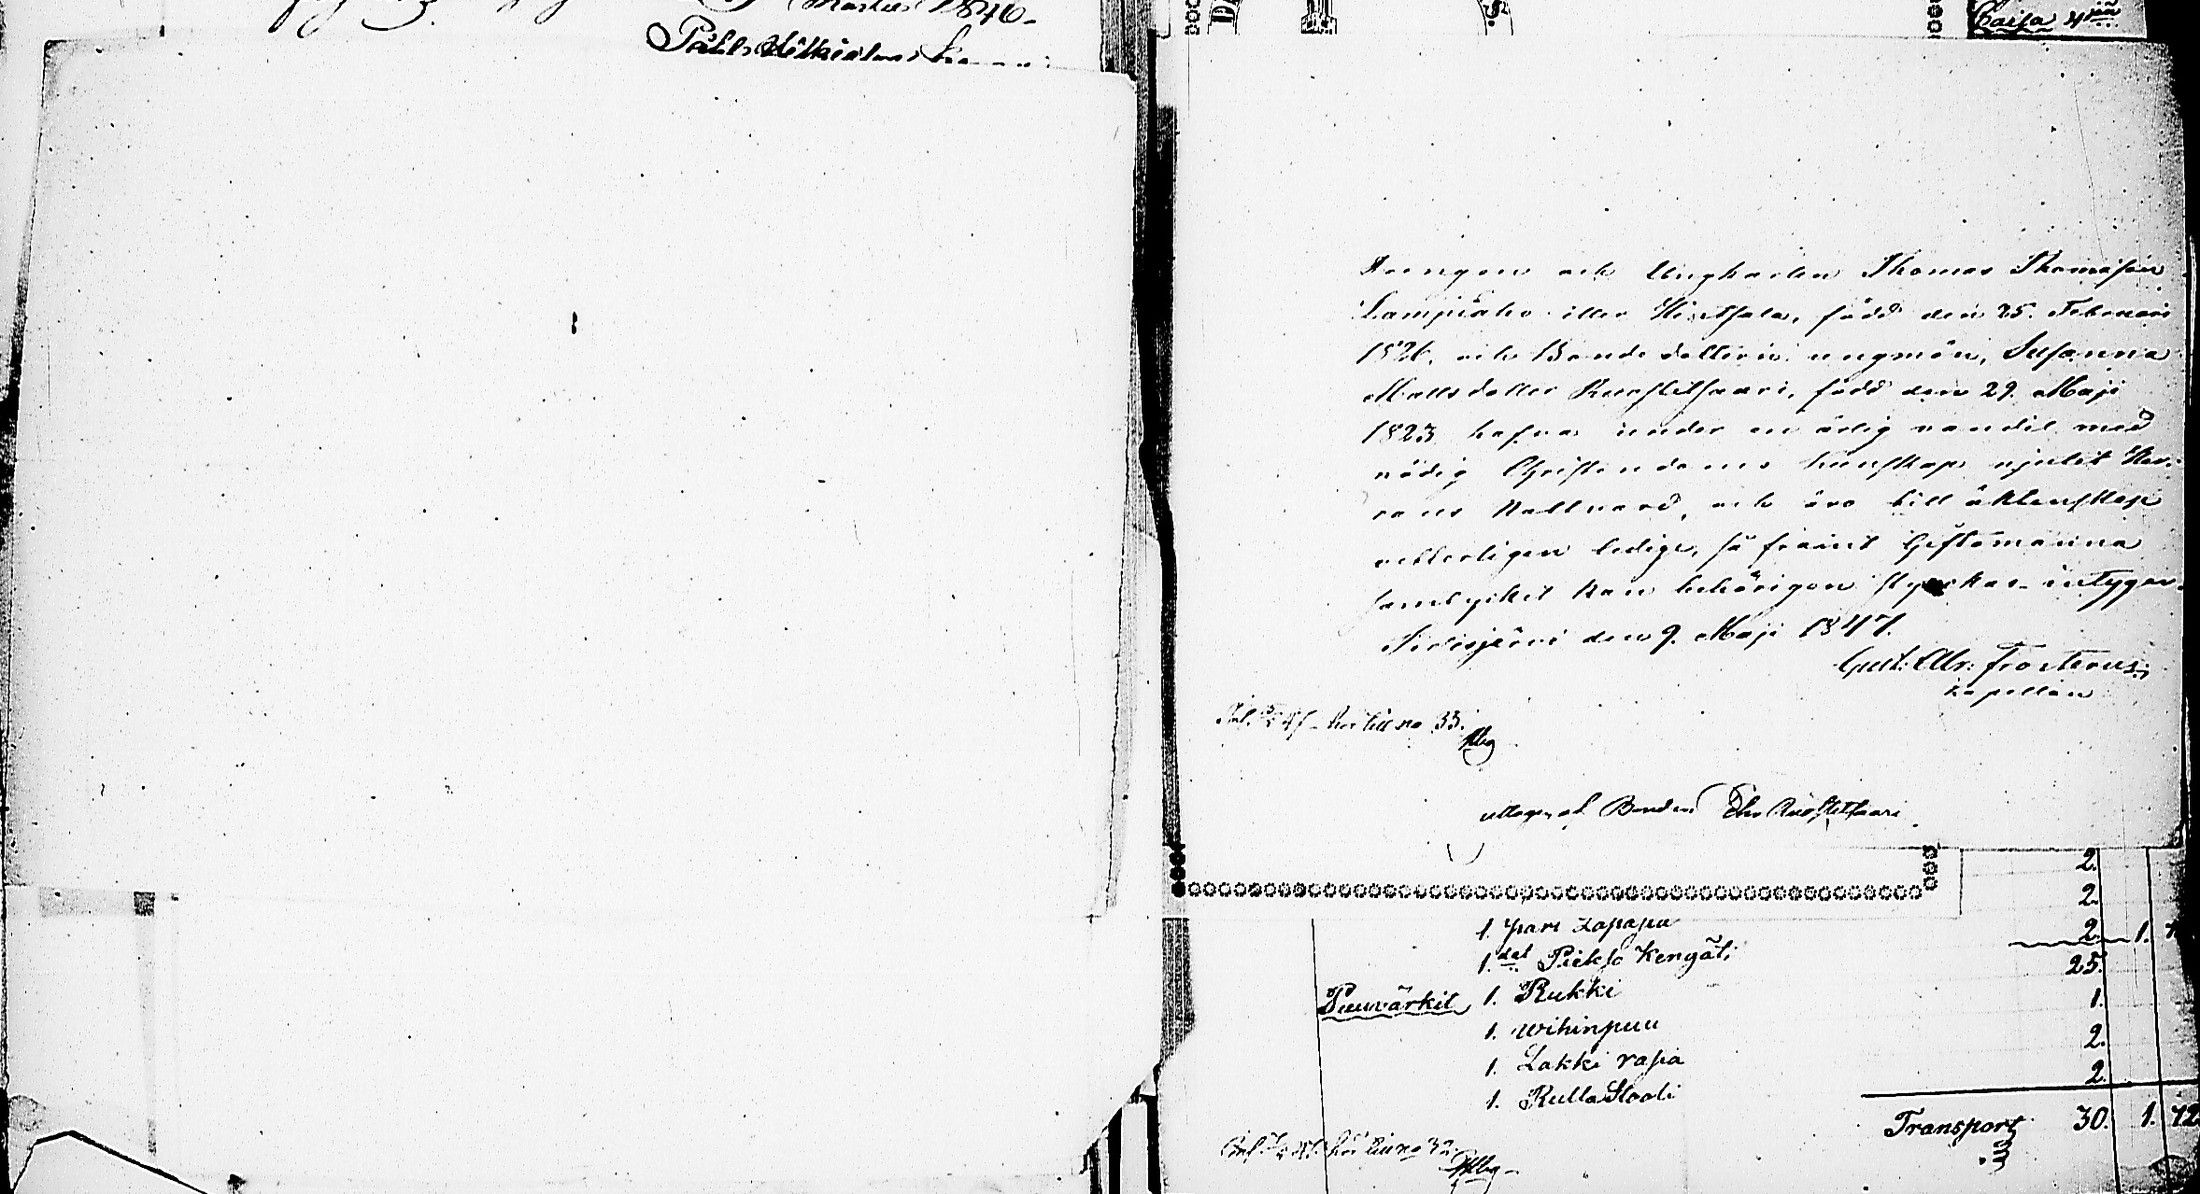 Martii 1846.
Caisa
Drängen och Ungkarlen Thomas Thomasson
Lampiaho eller Hirsala, född den 25. Februari
1826, och Bondedottren ungmön, Susanna
Mattsdotter Ruostetsaari, född den 29. Maji
1823 hafva under en ärlig vandel med
nödig Christendoms kunskap njutit Her-
rans Nattvard, och äro till äktenskap
veterligen ledige, så framt Giftomanna
samtycket kan behörigen styrkas, intygar
den 9. Maji 1847.
Gust: Abr: Frosterus,
Kapellan
hör till no 33.
uttages af Bonden Ruostetsaari
2.
2.
1. par Lapapu 2. 1.
1. det Pieksö Kengäti 25.
Puuvärkit 1. Rukki 1.
1. wihinpuu 2.
1. Lakki rasia 2.
1. Rulla Stooli
Transport 30. 1. 72
hör till no 32